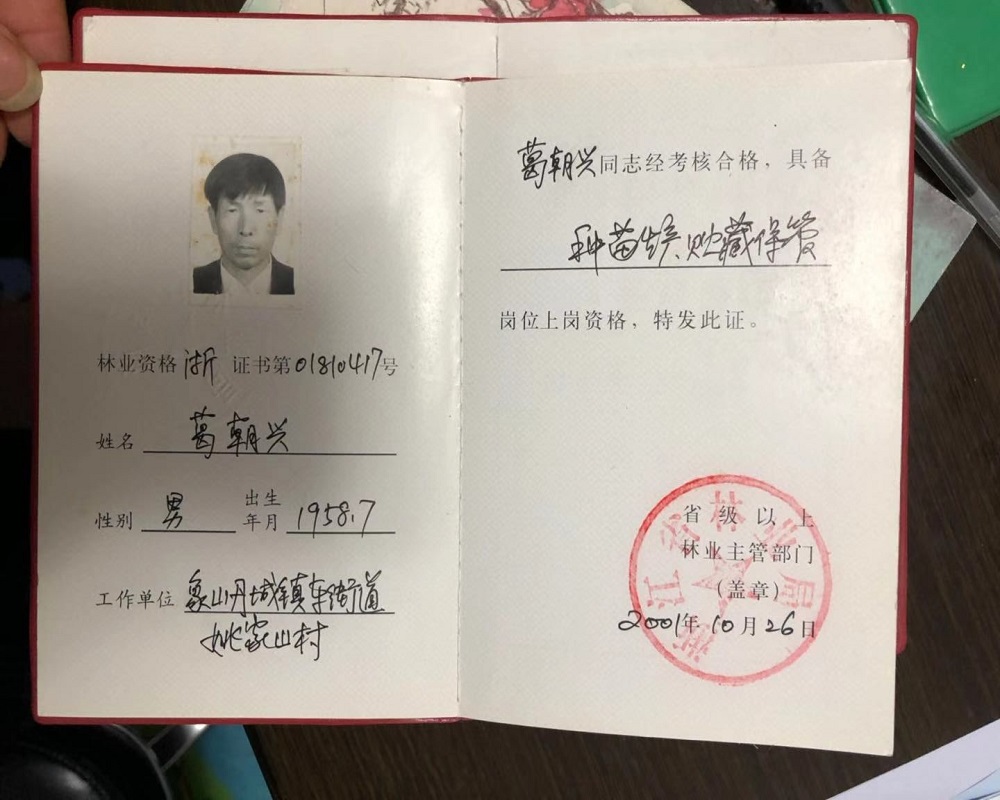 林业资格 浙 证书第01810417号
姓名 葛朝兴
性别 男 出生年月 1958.7
工作单位 象山丹城镇车街道
姚家山村
葛朝兴同志经考核合格，具备
种苗培育、贮藏保管
岗位上岗资格，特发此证。
浙江省林业局
省级以上
林业主管部门
(盖章)
2001年10月26日